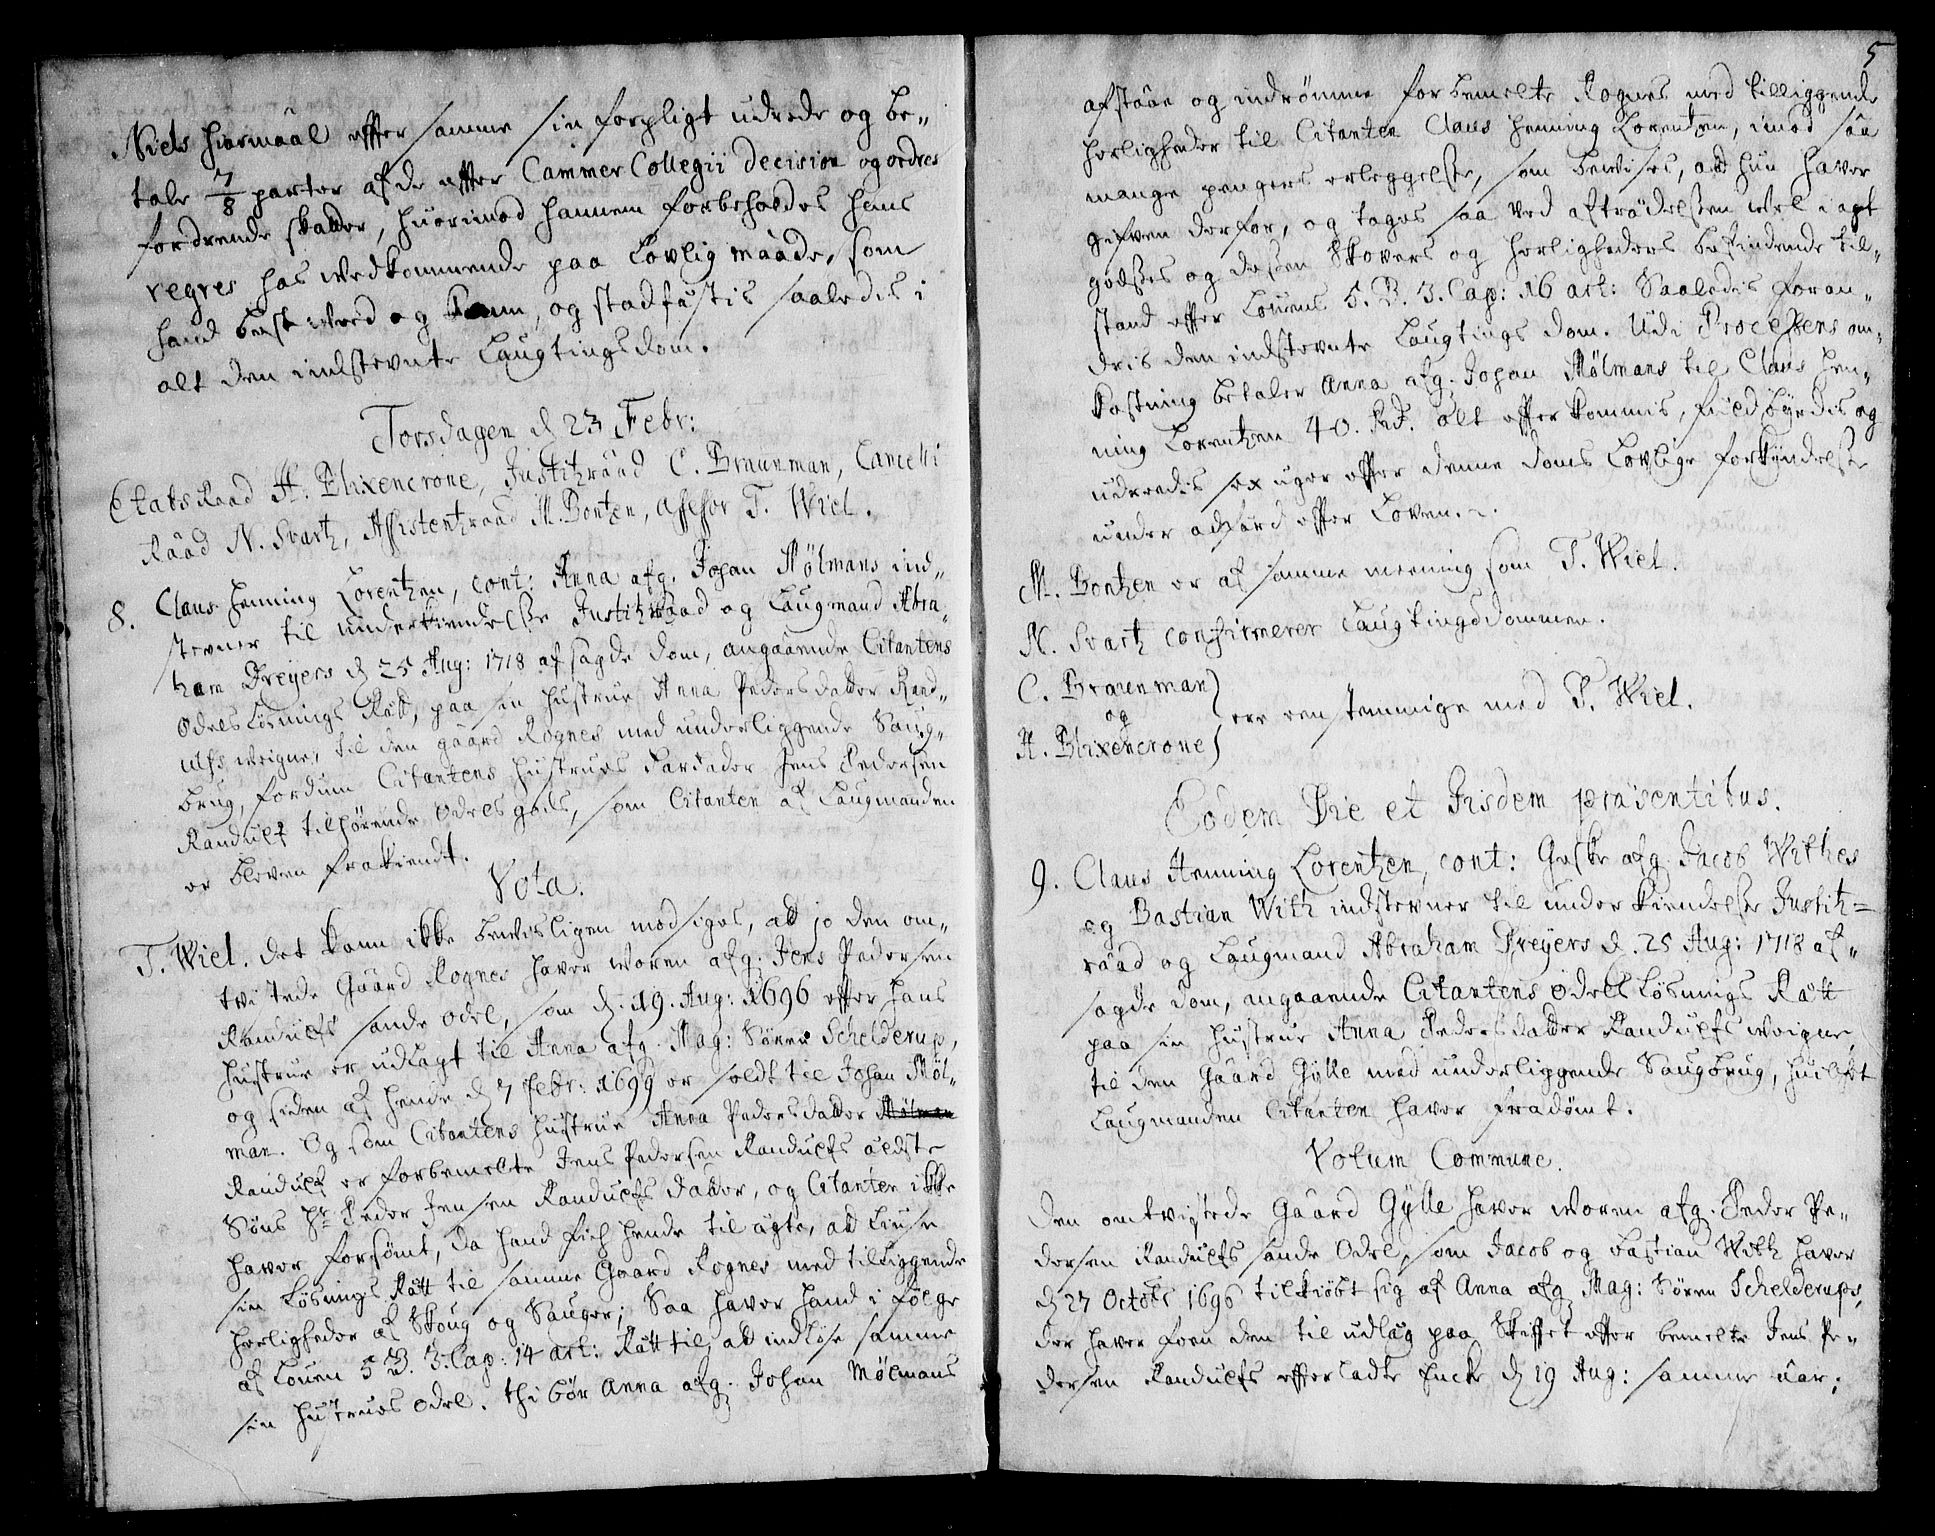 Niels Hiermaal effter samme sin forpligt udrede og be-
tale 7/8 parter af de effter Cammer Collegii Decision og ordres
fordrende skatter, huorimod hannem forbeholdes hans
regres hos wedkommende paa Lovlig maade, som
hand best weed og kann, og stadfæstis saaledis i
alt den indstevnte Laugtingsdom.
Torsdagen d 23 Febr:
EtatsRaad H. Blixencrone, Justitzraad C. Braunman, Cancelli
Raad N. Svartz, Assistentzraad M. Bentzen, Assessor T. Wiel.
8. Claus Henning Lorentzen, cont: Anna afg. Johan Mølmans ind-
stevner til underkiendelsse Justitzraad og Laugmand Abra-
ham Dreyers d 25 Aug: 1718 afsagde dom, angaaende Citantens
Odels Løsnings Rætt, paa sin Hustrue Anna Pedersdatter Rand-
ulfs weigne, til den gaard Rognes med underliggende Saug-
brug, fordum Citantens Hustrues Farfader Jens Pedersen
Randulf tilhørende Odelsgods, som Citanten af Laugmanden
er bleven frakiendt.
Vota.
T. Wiel. det kann ikke bevisligen modsiges, at jo den om-
twistede Gaard Rognes haver woren afg. Jens Pedersen
Randulfs sande odel, som d. 19. Aug: 1696 effter hans
Hustrue er udlagt til Anna afg. Mag: Søren Schelderup,
og siden af hende d 7 Febr: 1699 er soldt til Johan Møl-
man. Og som Citantens Hustrue Anna Pedersdatter Mølman
Randulf er forbemelte Jens Pedersen Randulfs ældste
Søns Hr Peder Jensen Randulfs datter, og Citanten ikke
haver forsømt, da hand fich hende til ægte, at liuse
sin Løsnings Rætt til samme Gaard Rognes med tilliggende
herligheder af Skoug og Sauger; Saa haver hand i følge
af Loven 5 B. 3. Cap: 14 art: Rætt til, at indløse samme
sin Hustrues odel. thi bør Anna afg. Johan Mølmans
5
afstaae og indrømme forbemelte Rognes med tilliggende
herligheder til Citanten Claus Henning Lorentzen, imod saa
mange pengers erleggelse, som bevises, at hun haver
gifven derfor, og tages saa ved aftrædelssen wel i agt
godsses og dessen Skovers og herligheders befindende til-
stand effter Lovens 5. B. 3. Cap: 16 art: Saaledis foran-
dris den indstevnte Laugtings dom. Udi Processens om-
kostning betaler Anna afg. Johan Mølmans til Claus Hen-
ning Lorentzen 40. Rd. alt effterkommis, fuldbyrdis og
udredis sex uger effter denne doms lovlige forkyndelse
under adfærd effter Loven.
M. Bentzen er af samme meening som T. Wiel.
N. Svartz confirmerer Laugtingsdommen.
C. Braunman
og
H. Blixencrone
ere eenstemmige med T. Wiel.
Eodem Die et Iisdem præsentibus.
9. Claus Henning Lorentzen, cont: Geske afg. Jacob Withes
og Bastian With indstevner til underkiendelse Justitz-
raad og Laugmand Abraham Dreyers d. 25 Aug: 1718 af-
sagde dom, angaaende Citantens Odels Løsnings Rætt
paa sin Hustrue Anna Pedersdatter Randulfs weigne,
til den Gaard Gylle med underliggende Saugbrug, huilket
Laugmanden Citanten haver fradømt.
Votum Commune.
Den omtvistede Gaard Gylle haver woren afg. Peder Pe-
dersen Randulfs sande Odel, som Jacob og Bastian With haver
d 27 Octobr 1696 tilkiøbt sig af Anna afg Mag: Søren Schelderups,
der haver foen den til udlæg paa Skifftet effter bemelte Jens Pe-
dersen Randulfs effterladte Encke d 19 Aug: samme aar;